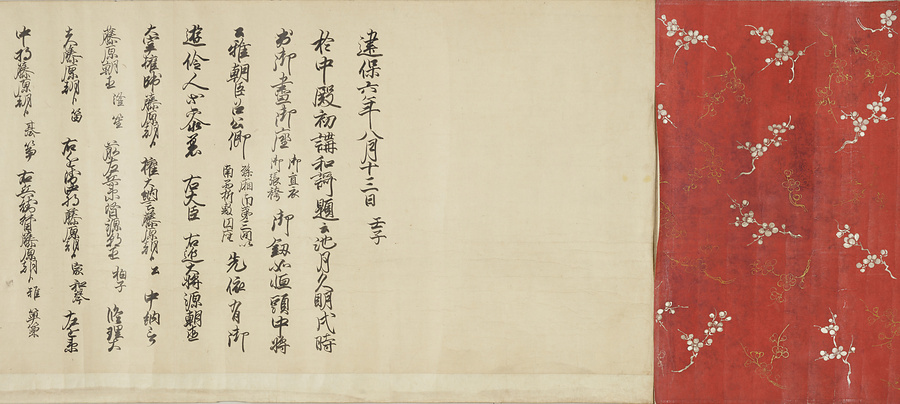 建保六年八月十三日 壬子
於中殿初講和謌題云池月久明戌時
出御昼御座 御直衣 御張袴 御釼如恒頭中将
公雅朝臣召公卿 孫廂南第三間以南平敷円座 先依有御
遊伶人必参着 右大臣 右近大将源朝臣
大宰権帥藤原朝臣 権大納言藤原朝臣 中納言
藤原朝臣 笙 源朝臣 拍子 修理大
夫藤原朝臣 笛 藤原朝臣 和琴 左
中将藤原朝臣 箏 右兵衛督藤原朝臣 雅 篳篥